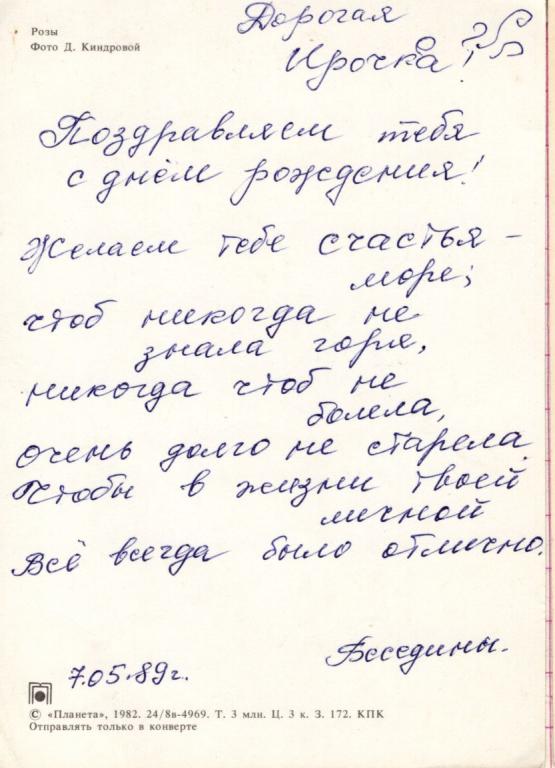 Розы
Фото Д. Киндровой
Дорогая
Ирочка!
Поздравляем тебя
с днём рождения!
Желаем тебе счастья –
море;
чтоб никогда не
знала горя,
никогда чтоб не
болела,
очень долго не старела.
Чтобы в жизни твоей
личной
Всё всегда было отлично.
Беседины.
7.05.89г.
© «Планета», 1982. 24/8в-4969. Т. 3 млн. Ц. 3 к. З. 172. КПК
Отправлять только в конверте